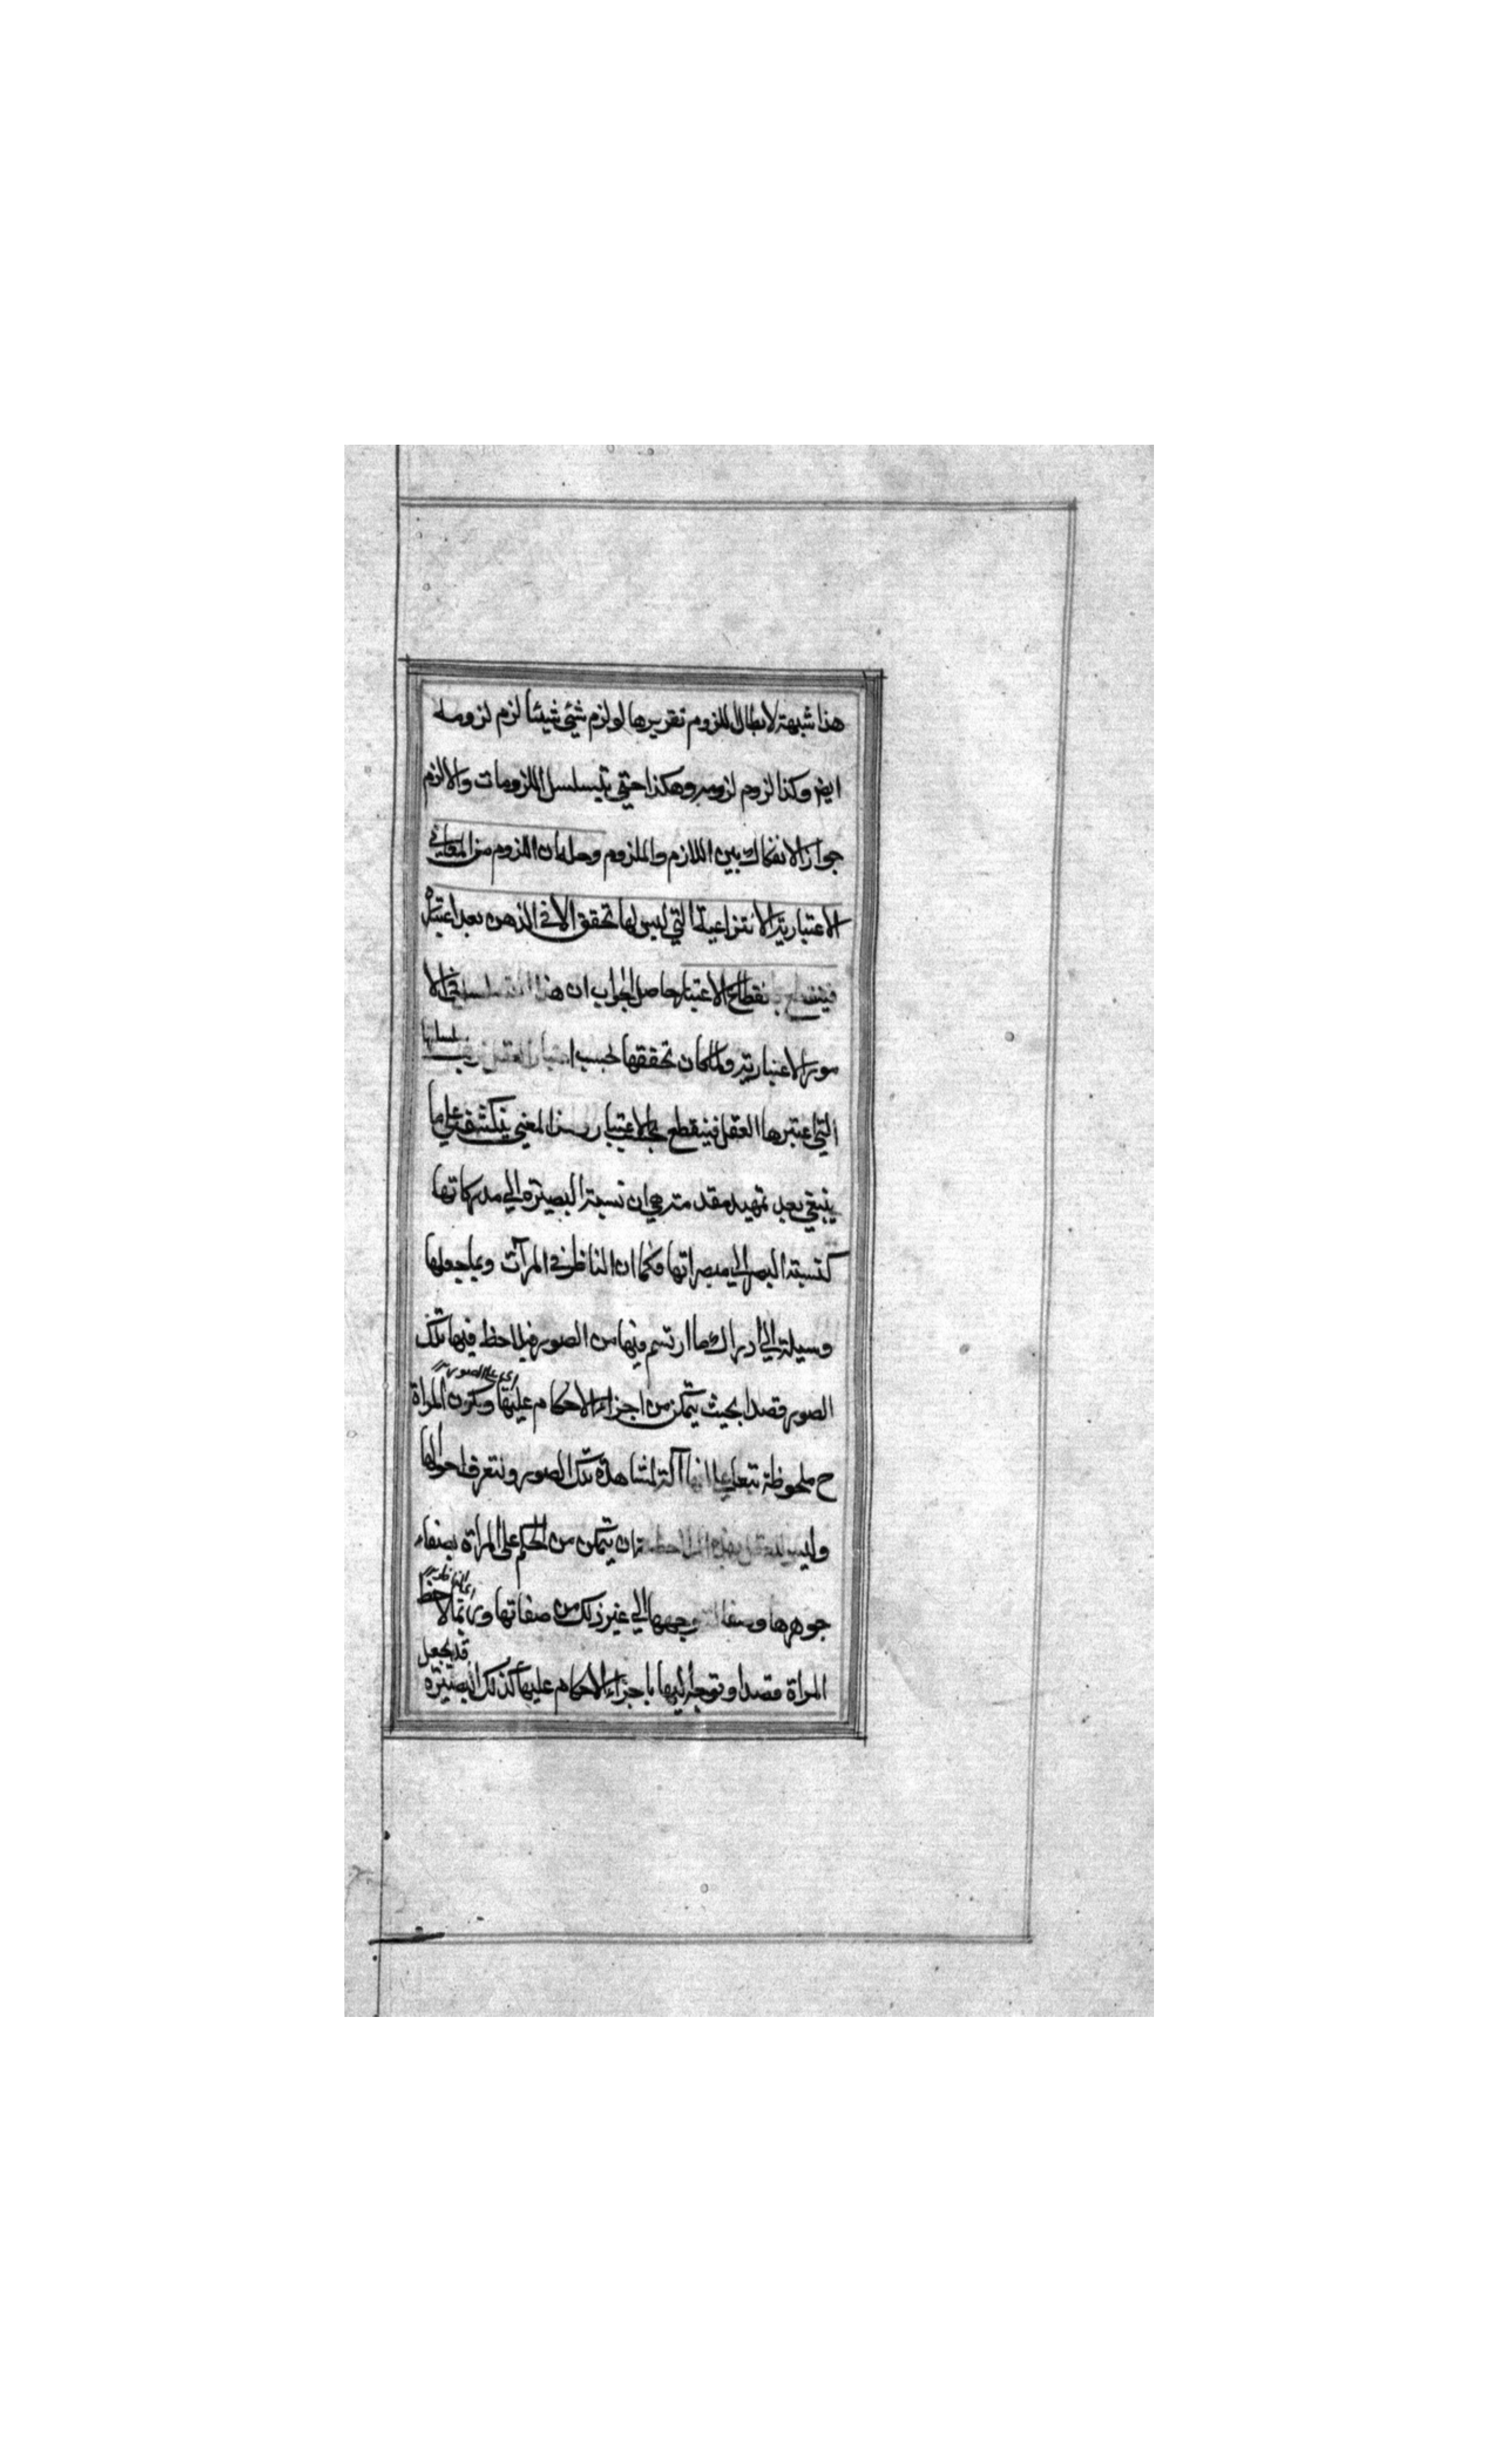 هذا شبهة لابطال اللزوم تقريرها لو لزم شيئ شيئا لزم لزومه
ايض وكذا لزوم لزومه وهكذا حتى يتسلسل اللزومات والا لزم
جواز الانفكاك بين اللازم والملزوم وحله ان اللزوم من المعاني
الاعتبارية الانتزاعية التي ليس لها تحقق الا في الذهن بعد اعتباره
فينقطع بانقطاع الاعتبار حاصل الجواب ان هذا في الا
مور الاعتبارية ولما كان تحققها بحسب العقل
التي اعتبرها العقل فينقطع الاعتبار المعنى ينكشف على ما
ينبغي بعد تمهيد مقدمة هي ان نسبة البصيرة الي مدركاتها
كنسبة البصر الي مبصراتها فكما ان الناظر في المرآت ربما جعلها
وسيلة الي ادراك ما ارتسم فيها من الصور فيلاحظ فيها تلك
الصور قصدا بحيث يتمكن من اجزاء الاحكام عليها وتكون المراة
اي على الصور
ح ملحوظة تبعا علي انها آلة لمشاهدة تلك الصور وتتعرف احوالها
وليس ان يتمكن من الحكم على المراة بصفاء
جوهرها وصفا وجهها الي غير ذلك من صفاتها وربما لاحظ
اي الناظر
المراة قصدا وتوجه اليها باجزاء الاحكام عليها كذلك البصيرة
قد يجعل